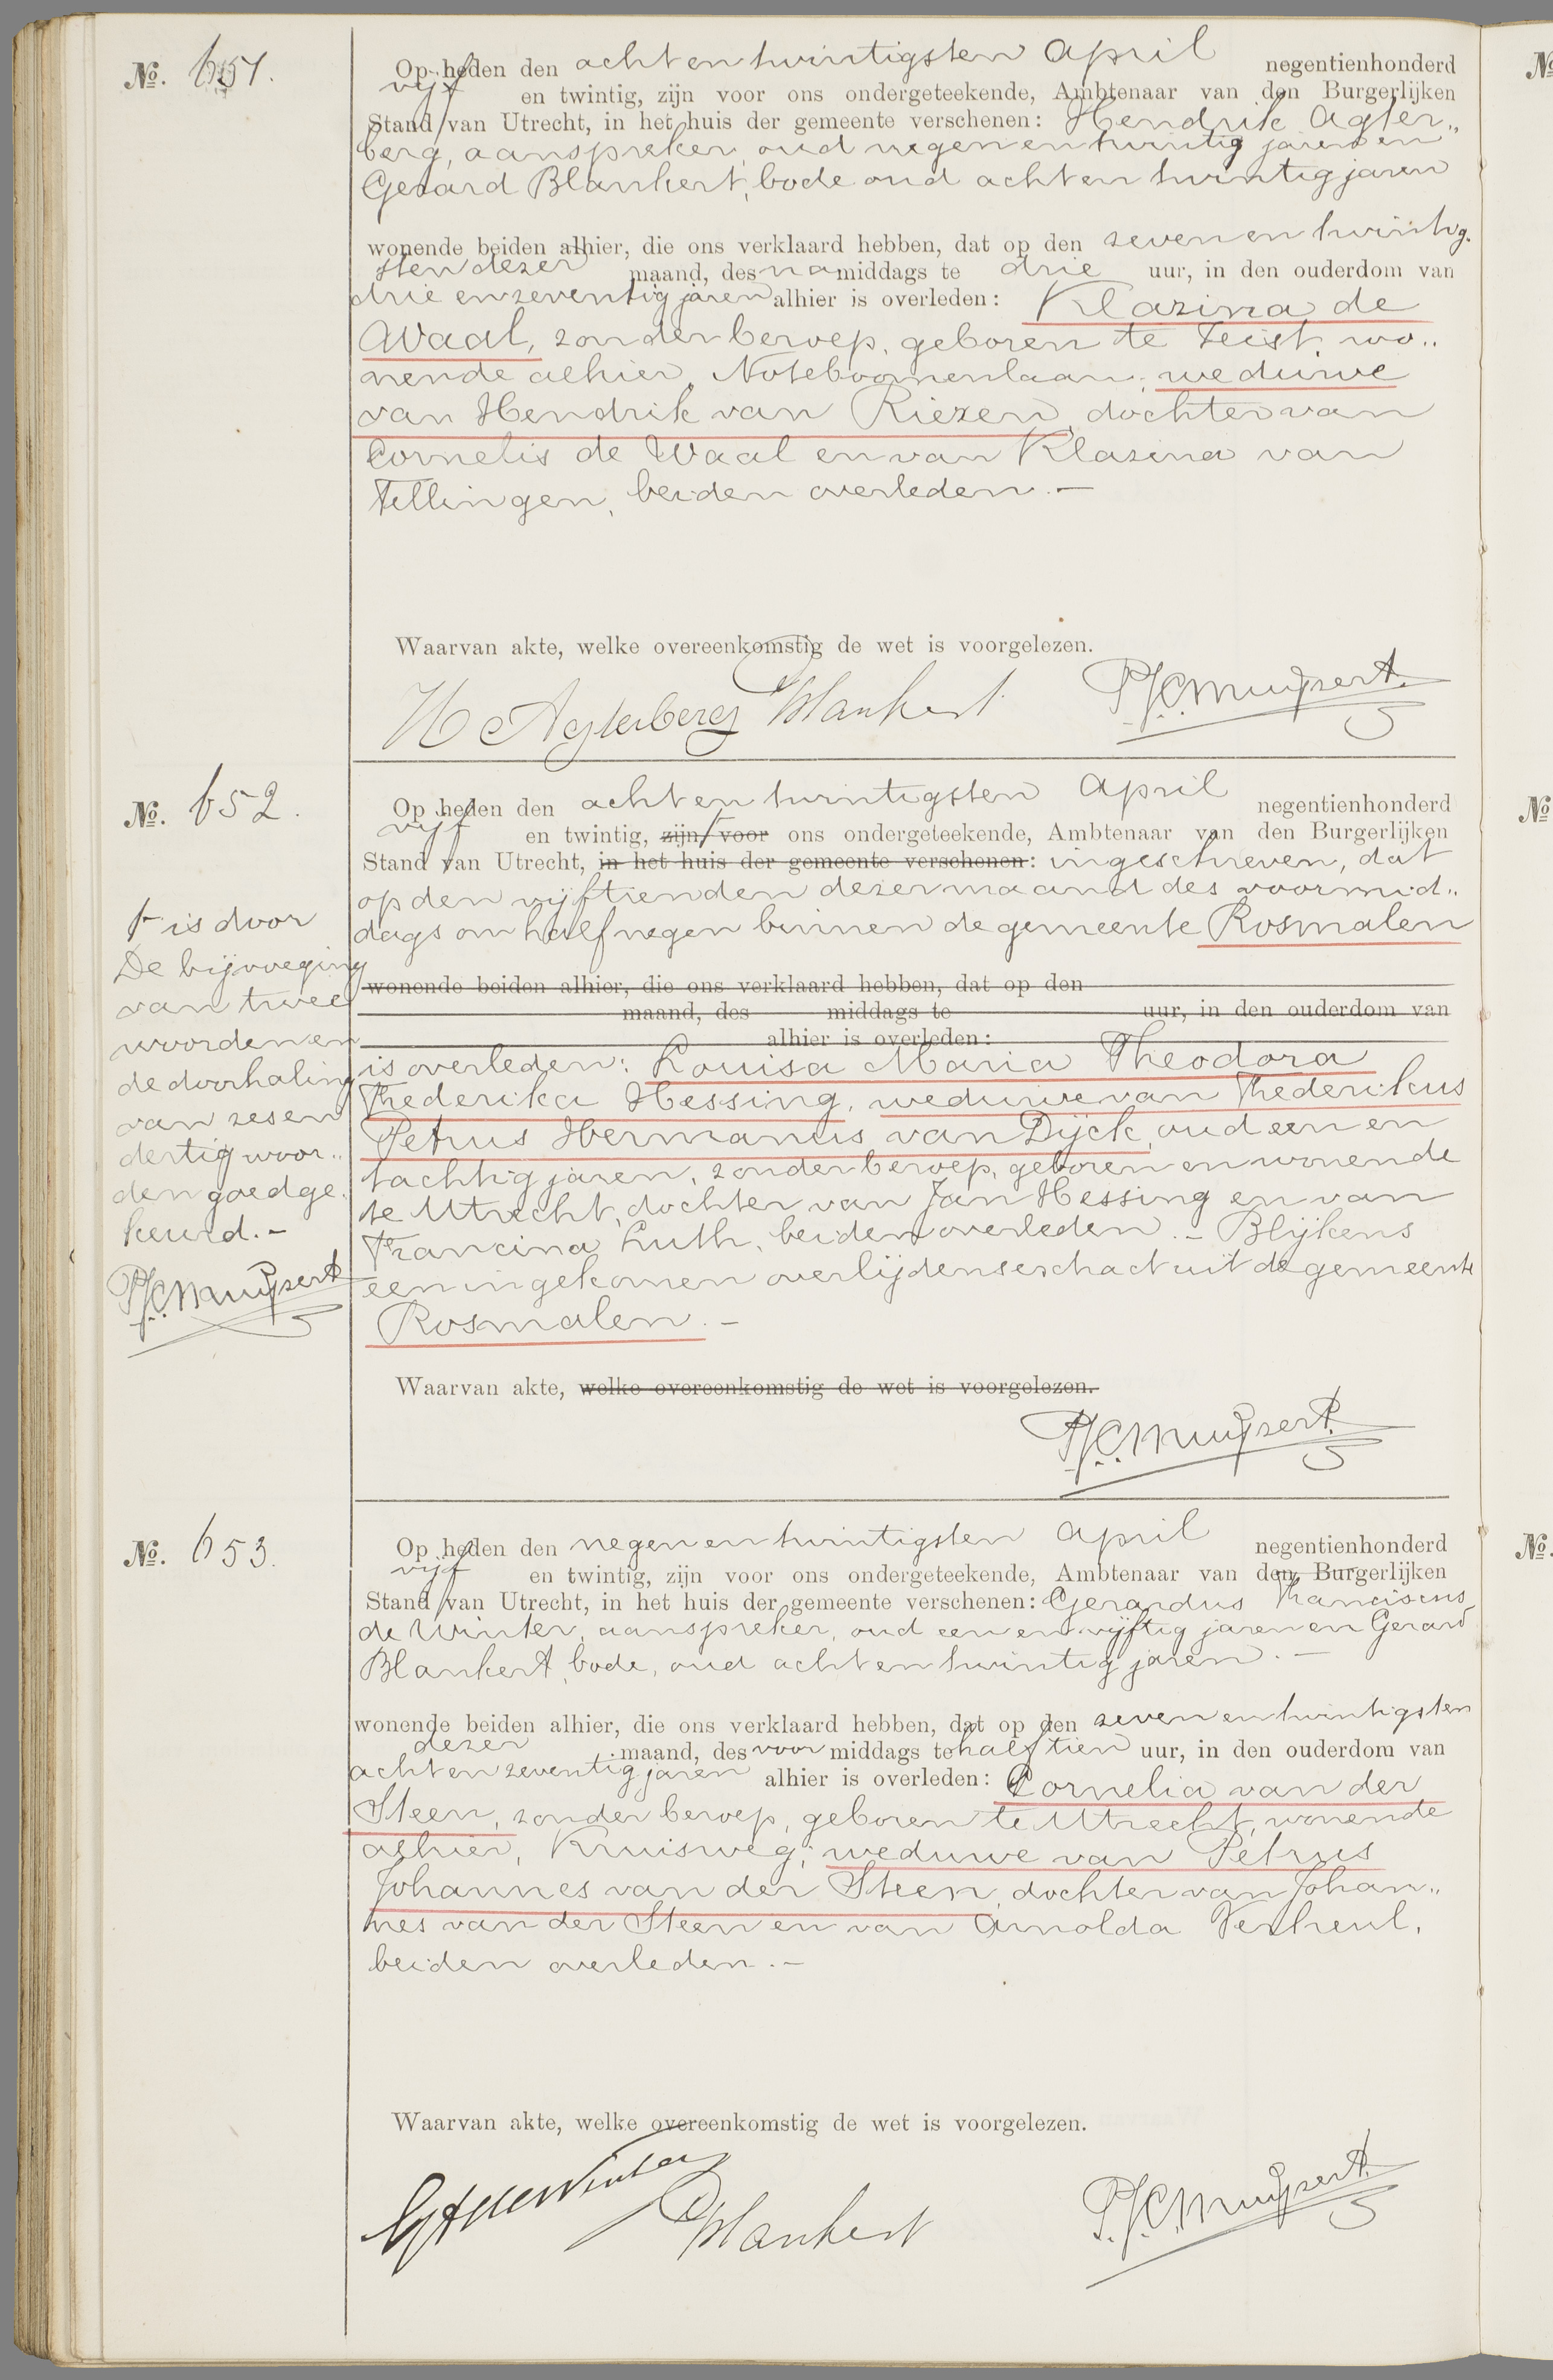 No. 651.
Op heden den achtentwintigsten April negentienhonderd
vijf en twintig, zijn voor ons ondergeteekende, Ambtenaar van den Burgerlijken
Stand van Utrecht, in het huis der gemeente verschenen: Hendrik Agter„
berg, aanspreker, oud negenentwintig jaren en
Gerard Blankert, bode oud achtentwintig jaren
wonende beiden alhier, die ons verklaard hebben, dat op den zevenentwintig„
sten dezer maand, des namiddags te drie uur, in den ouderdom van
drieenzeventig jaren alhier is overleden: Klazina de
Waal, zonder beroep, geboren te Zeist, wo„
nende alhier, Noteboomenlaan, weduwe
van Hendrik van Riezen, dochter van
Cornelis de Waal en van Klazina van
Tellingen, beiden overleden.-
Waarvan akte, welke overeenkomstig de wet is voorgelezen.
H Agterberg Blankert P.J.C. Muijsert.
No. 652.
Op heden den achtentwintigsten April negentienhonderd
vijf en twintig, zijn voor ons ondergeteekende, Ambtenaar van den Burgerlijken
Stand van Utrecht, in het huis der gemeente verschenen: ingeschreven, dat
op den vijftienden dezer maand des voormid„
dags om half negen binnen de gemeente Rosmalen
wonende beiden alhier, die ons verklaard hebben, dat op den
maand, des middags te uur, in den ouderdom van
alhier is overleden:
is overleden: Louisa Maria Theodora
Frederika Hessing, weduwe van Frederikus
Petrus Hermanus van Dijck, oud een en
tachtig jaren, zonder beroep, geboren en wonende
te Utrecht, dochter van Jan Hessing en van
Francina Luth, beiden overleden.- Blijkens
een ingekomen overlijdensextract uit de gemeente
Rosmalen.-
Waarvan akte, welke overeenkomstig de wet is voorgelezen.
P.J.C. Muijsert.
Γ is door
De bijvoeging
van twee
woorden en
de doorhaling
van zesen
dertig woor„
den goedge„
keurd.-
P.J.C. Muijsert
No. 653.
Op heden den negenentwintigsten April negentienhonderd
vijf en twintig, zijn voor ons ondergeteekende, Ambtenaar van den Burgerlijken
Stand van Utrecht, in het huis der gemeente verschenen: Gerardus Franciscus
de Winter, aanspreker, oud een en vijftig jaren en Gerard
Blankert, bode, oud achtentwintig jaren.-
wonende beiden alhier, die ons verklaard hebben, dat op den zevenentwintigsten
dezer maand, des voormiddags te half tien uur, in den ouderdom van
achtenzeventig jaren alhier is overleden: Cornelia van der
Steen, zonder beroep, geboren te Utrecht, wonende
alhier, Kruisweg, weduwe van Petrus
Johannes van der Steen, dochter van Johan„
nes van der Steen en van Arnolda Verheul,
beiden overleden.-
Waarvan akte, welke overeenkomstig de wet is voorgelezen.
Blankert P.J.C. Muijsert.
No
No
No.